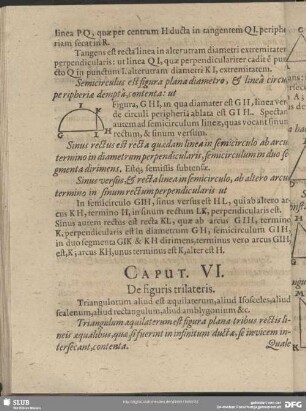 linea PQ, quæ per centrum H ducta in tangentem QI, periphe
riam secat in R.
Tangens est recta linea in alterutram diametri extremitatem
perpendicularis: ut linea QI, quæ perpendiculariter cadit è pun
cto Q in punctum I, alterutram diametri KI, extremitatem.
Semicirculus est figura plana diametro, & linea circu
peripheria dempta, contenta: ut
Figura, GHI, in qua diamater est GH, linea ver
de circuli peripheria ablata est GIH. Spectan
autem ad semicirculum lineæ, quas vocant sinum
rectum, & sinum versum.
Sinus rectus est rectæ quædam linea in semicirculo ab arcu
termino in diametrum perpendicularis, semicirculum in duo seg
menta dirimens, Estq; semissis subtensæ.
Sinus versus est recta linea in semicirculo, ab altero arcus
termino in sinum rectum perpendicularis ut
In semicirculo GIH, sinus versus est HL, qui ab altero ar
cus KH, termino H, in sinum rectum LK, perpendicularis est.
Sinus autem rectus est recta KL, quæ ab arcus GIH, termino
K, perpendicularis est in diametrum GH, semicirculum GIH
in duo segmenta GIK & KH dirimens, terminus vero arcus GIH
est, K, arcus KH, unus terminus est K, alter est H.
CAPUT. VI.
De figuris trilateris.
Triangulorum aliud est æquilaterum, aliud Isosceles, aliud
scalenum, aliud rectangulum, aliud amblygonium &c.
Triangulum æquilaterum est figura plana tribus rectis li
neis æqualibus, quæ si fuerint in infinitum ductæ, se invicem in
tersecant, contenta.
Quale
SLUB
DFG